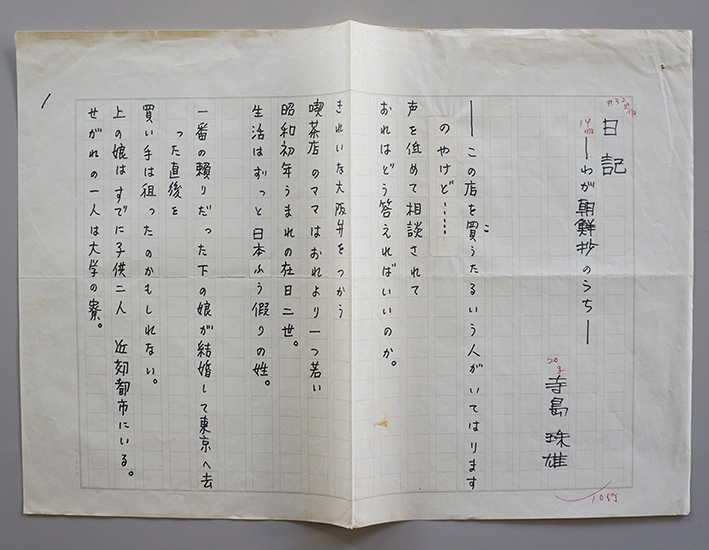 日記
―わが朝鮮抄のうち―
寺島珠雄
―この店を買うたるいう人がいてはります
こ
のやけど……
声を低めて相談されて
おれはどう答えればいいのか。
きれいな大阪弁をつかう
喫茶店のママはおれより一つ若い
昭和初年うまれの在日二世。
生活はずっと日本ふう假りの姓。
一番の頼りだった下の娘が結婚して東京へ去
った直後を
買い手は狙ったのかもしれない。
上の娘はすでに子供二人 近郊都市にいる。
せがれの一人は大学の寮。
1